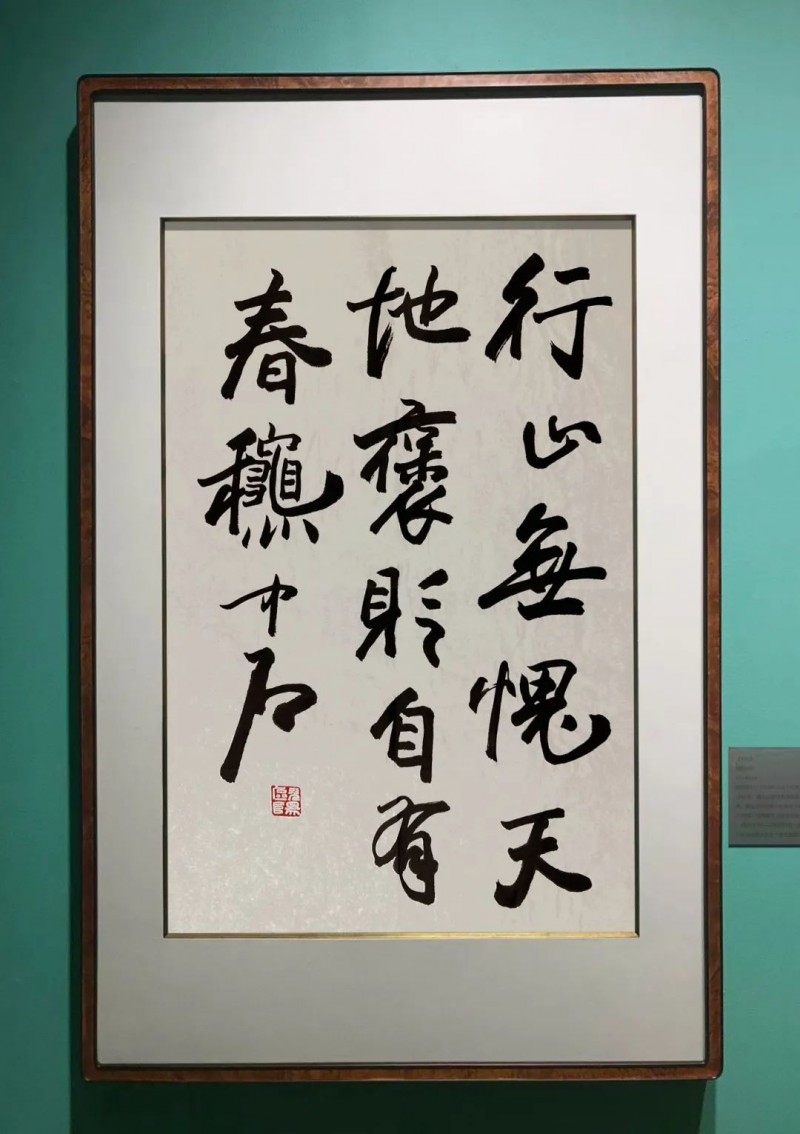 行止無愧天
地褒貶自有
春龝中石